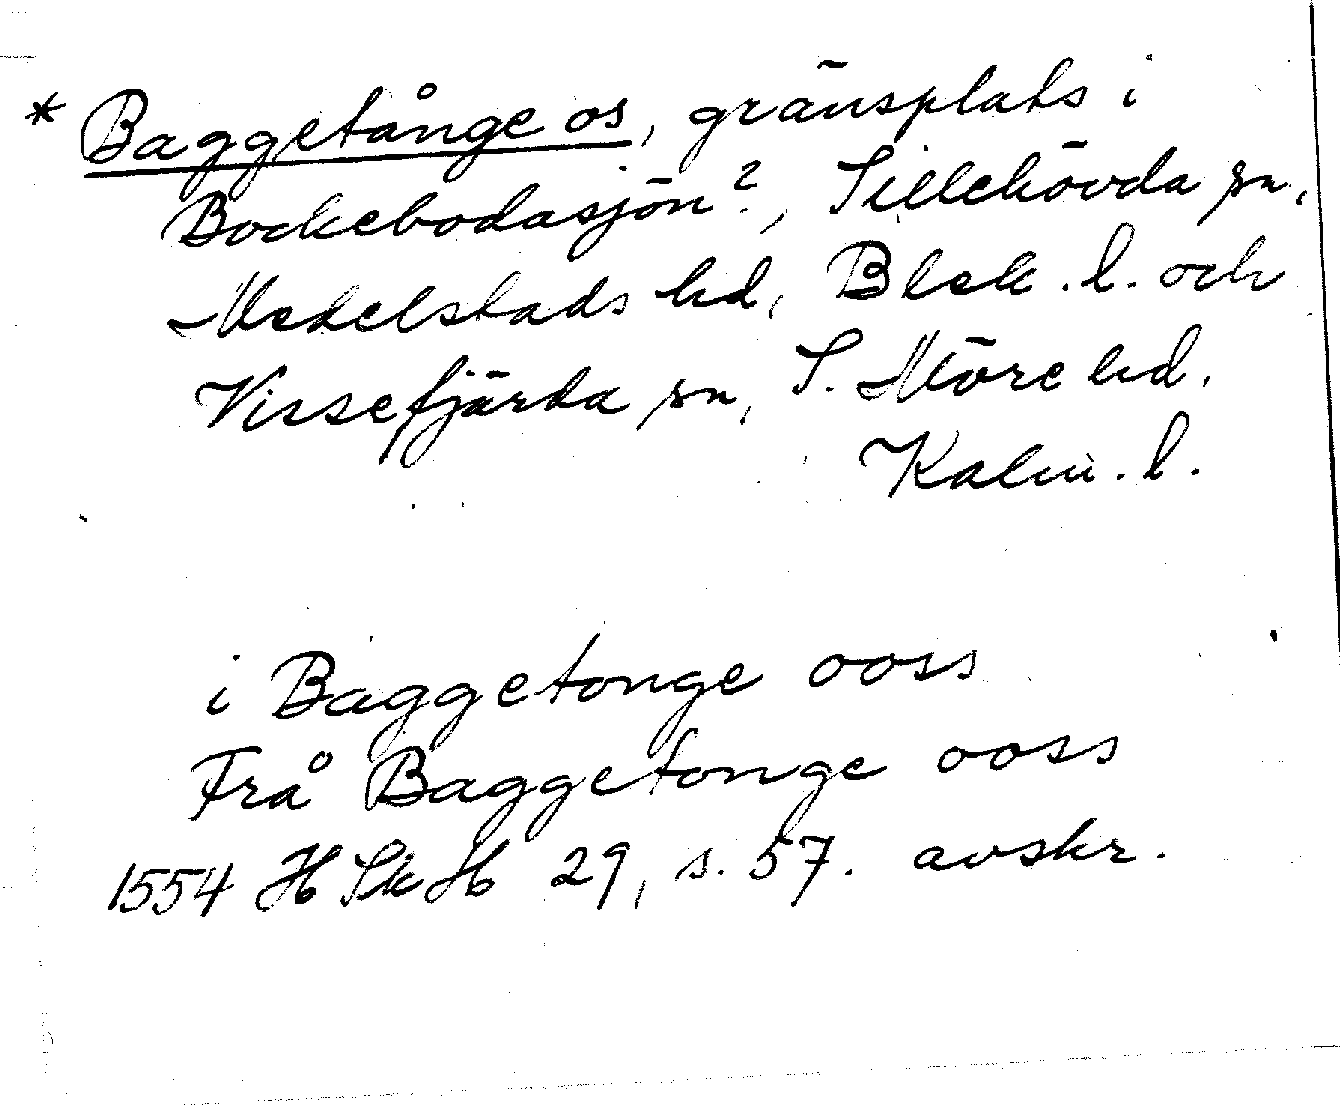 * Baggetånge os, gränsplats i
Bockebodasjön?, Sillehövda sn,
Medelstads hd, Blek. l. och
Vissefjärda sn, S. Möre hd,
Kalm. l.
i Baggetonge ooss
Frå Baggetonge ooss
1554 HSkH 29, s. 57. avskr.